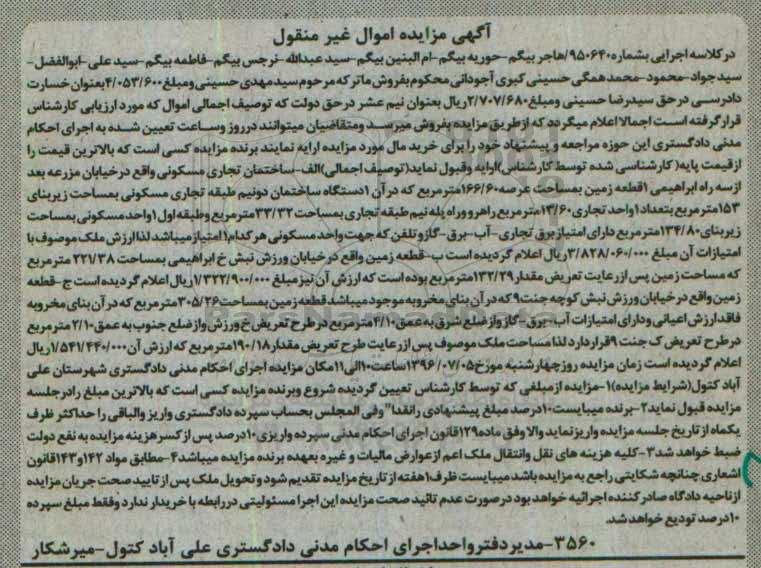 آگهی مزایده اموال غیر منقول
در کلاسه اجرایی بشماره ۹۵۰۶۴۰/هاجر بیگم-حوریه بیگم-ام البنین بیگم-سید عبدالله-نرجس بیگم-فاطمه بیگم-سید علی-ابوالفضل-
سید جواد-محمود-محمد همگی حسینی کبری آجودانی محکوم بفروش ماترکه مرحوم سید مهدی حسینی و مبلغ ۴/۰۵۳/۶۰۰ بعنوان خسارت
دادرسی در حق سید رضا حسینی و مبلغ ۲/۷۰۷/۶۸۰ ریال بعنوان نیم عشر در حق دولت که توصیف اجمالی اموال که مورد ارزیابی کارشناس
قرار گرفته است اجمالا اعلام میگردد که از طریق مزایده بفروش میرسد و متقاضیان میتوانند در روز و ساعت تعیین شده به اجرای احکام
مدنی دادگستری این حوزه مراجعه و پیشنهاد خود را برای خرید مال مورد مزایده ارایه نمایند برنده مزایده کسی است که بالاترین قیمت را
از قیمت پایه( کارشناسی شده توسط کارشناس)ارایه وقبول نماید(توصیف اجمالی)الف-ساختمان تجاری مسکونی واقع در خیابان مزرعه بعد
از سه راه ابراهیمی ۱قطعه زمین بمساحت عرصه ۱۶۶/۶۰مترمربع که در آن ۱دستگاه ساختمان دونیم طبقه تجاری مسکونی بمساحت زیربنای
۱۵۳مترمربع بتعداد ۱واحد تجاری ۱۳/۶۰مترمربع راهرو وراه پله نیم طبقه تجاری بمساحت ۳۳/۳۲مترمربع وطبقه اول ۱واحد مسکونی بمساحت
زیربنای ۱۳۴/۸۰مترمربع دارای امتیاز برق تجاری-آب-برق-گاز وتلفن که جهت واحد مسکونی هر کدام ۱امتیاز میباشد لذا ارزش ملک موصوف با
امتیازات آن مبلغ ۳/۸۲۸/۰۶۰/۰۰۰ریال اعلام گردیده است ب-قطعه زمین واقع در خیابان ورزش نبش خ ابراهیمی بمساحت ۲۲۱/۳۸ مترمربع
که مساحت زمین پس از رعایت تعریض مقدار ۱۳۲/۲۹مترمربع بوده است که ارزش آن نیز مبلغ ۱/۳۲۲/۹۰۰/۰۰۰ریال اعلام گردیده است ج-قطعه
زمین واقع در خیابان ورزش نبش کوچه جنت۹ که در آن بنای مخروبه موجود میباشد قطعه زمین بمساحت۳۰۵/۲۶مترمربع که در آن بنای مخروبه
فاقد ارزش اعیانی ودارای امتیازات آب-برق-گاز واز ضلع شرق به عمق ۴/۱۰مترمربع در طرح تعریض خ ورزش واز ضلع جنوب به عمق ۲/۱۰ مترمربع
در طرح تعریض ک جنت ۹قرار دارد لذا مساحت ملک موصوف پس از رعایت طرح تعریض مقدار ۱۹۰/۱۸مترمربع که ارزش آن ۱/۵۴۱/۴۴۰/۰۰۰ریال
اعلام گردیده است زمان مزایده روز چهارشنبه مورخ ۱۳۹۶/۰۷/۰۵ساعت ۱۰الی ۱۱مکان مزایده اجرای احکام مدنی دادگستری شهرستان علی
آباد کتول(شرایط مزایده)۱-مزایده از مبلغی که توسط کارشناس تعیین گردیده شروع وبرنده مزایده کسی است که بالاترین مبلغ را در جلسه
مزایده قبول نماید۲-برنده میبایست ۱۰درصد مبلغ پیشنهادی را نقدا" وفی المجلس بحساب سپرده دادگستری واریز والباقی را حداکثر ظرف
یکماه از تاریخ جلسه مزایده واریز نماید والا وفق ماده ۱۲۹قانون اجرای احکام مدنی سپرده واریزی ۱۰درصد پس از کسر هزینه مزایده به نفع دولت
ضبط خواهد شد۳-کلیه هزینه های نقل وانتقال ملک اعم از عوارض مالیات و غیره بعهده برنده مزایده میباشد۴-مطابق مواد ۱۴۲و۱۴۳قانون
اشعاری چنانچه شکایتی راجع به مزایده باشد میبایست ظرف ۱هفته از تاریخ مزایده تقدیم شود وتحویل ملک پس از تایید صحت جریان مزایده
از ناحیه دادگاه صادر کننده اجرائیه خواهد بود در صورت عدم تائید صحت مزایده این اجرا مسئولیتی در رابطه با خریدار ندارد وفقط مبلغ سپرده
۱۰درصد تودیع خواهد شد.
۳۵۶۰-مدیر دفتر واحد اجرای احکام مدنی دادگستری علی آباد کتول-میرشکار
ParsNamadData